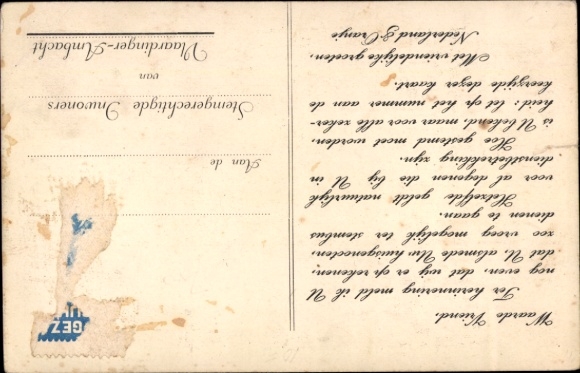 Waarde Vriend,
Ter herinnering meld ik U
nog even, dat wij er op rekenen,
dat U, alsmede Uw huisgenooten,
zoo vroeg mogelijk ter stembus
dienen te gaan.
Hetzelfde geldt natuurlijk
voor al degenen die bij U in
dienstbetrekking zijn.
Hoe gestemd moet worden,
is U bekend, maar voor alle zeker-
heid: let op het nummer aan de
keerzijde dezer kaart.
Met vriendelijke groeten,
Nederland & Oranje
Aan de
Stemgerechtigde Inwoners
van
Vlaardinger-Ambacht
GEZ